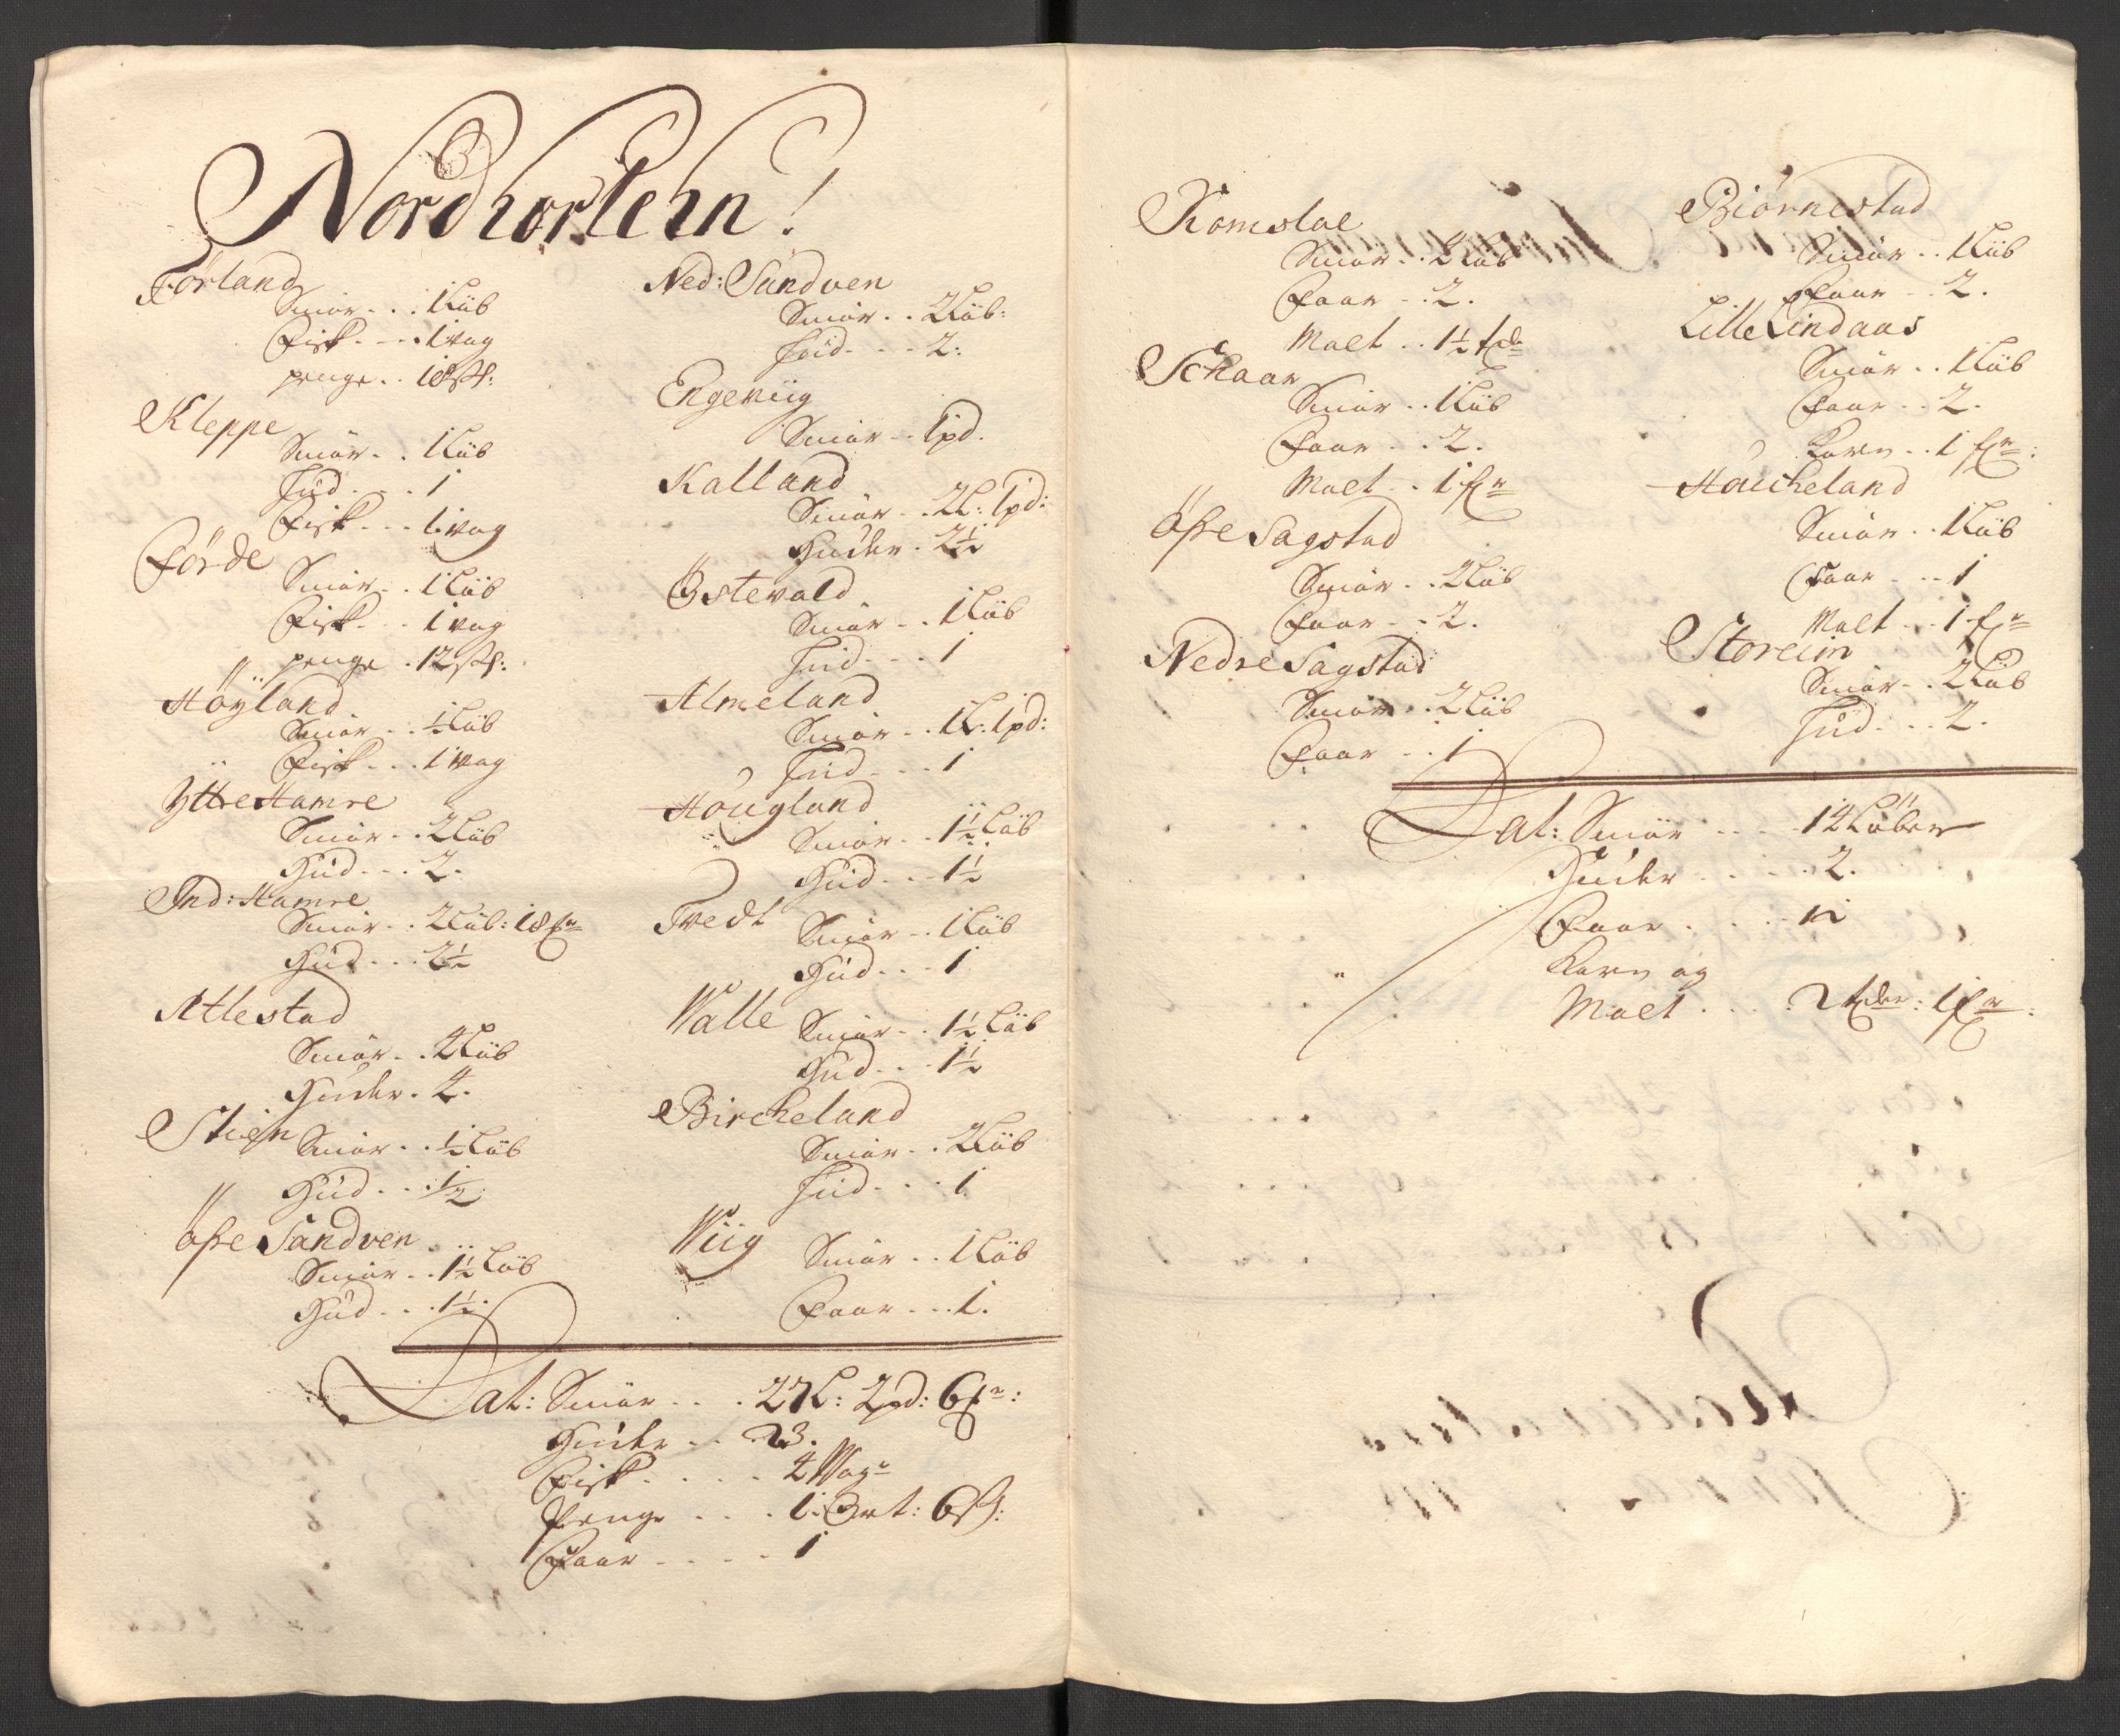 Nordhorlehn!
Førland
Smør . . 1 Løb
Fisk . . . 1 vog
penge . . 18 ß:
Kleppe
Smør . . 1 Løb
Hud . . . 1
Fisk . . . 1 vog
Førde
Smør . . 1 Løb
Fisk . . . 1 vog
penge . 12 ß:
Høyland
Smør . . ½ Løb
Fisk . . . 1 vog
Yttre Hamre
Smør . . 2 Løb
Hud . . . 2.
Ind: Hamre
Smør . . 2 Løb: 18 mr
Hud . . . 2½
Atlestad
Smør . . 2 Løb
Huder . 4.
Stien
Smør . . ½ Løb
Hud . . . ½
Øfre Sandven
Smør . . 1½ Løb
Hud . . . 1½.
Ned: Sandven
Smør . . 2 Løb:
Hud . . . 2:
Engeviig
Smør . . 1 pd.
Kalland
Smør . . 2 L: 1 pd:
Huder . 2½
Østevold
Smør . . 1 Løb
Hud . . . 1
Almeland
Smør . . 1 L: 1 pd:
Hud . . . 1
Hougland
Smør . . 1½ Løb
Hud . . . 1½
Tvedt
Smør . . 1 Løb
Hud . . . 1
Walle
Smør . . 1½ Løb
Hud . . . 1½
Bircheland
Smør . . 2 Løb
Hud . . . 1
Wiig
Smør . . 1 Løb
Faar . . . 1.
Lat: Smør . . . 27 L: 2 pd: 6 mr:
Huder . . . 23.
Fisk . . . . 4 Wogr
Penge . . . 1 Ort: 6 ß:
Faar . . . . 1
Romslae
Smør . . 2 Løb
Faar . . 2.
Malt . . 1½ tdr
Schaar
Smør . . 1 Løb
Faar . . 2.
Malt . . 1
Øfre Sagstad
Smør . . 2 Løb
Faar . . 2.
Nedre Sagstad
Smør . . 2 Løb
Faar . . 1
Biørnestad
Smør . . 1 Løb
Faar . . 2.
Lille Lindaas
Smør . . 1 Løb
Faar . . 2.
Korn . . 1
Haucheland
Smør . 1 Løb
Faar . . . 1
Malt . . 1
Storeim
Smør . . 2 Løb
Hud . . . 2.
Lat: Smør . . . 12 Løber
Huder . . . . 2.
Faar . . . . 12
Korn og
Malt . . . . 2 tdr: 1